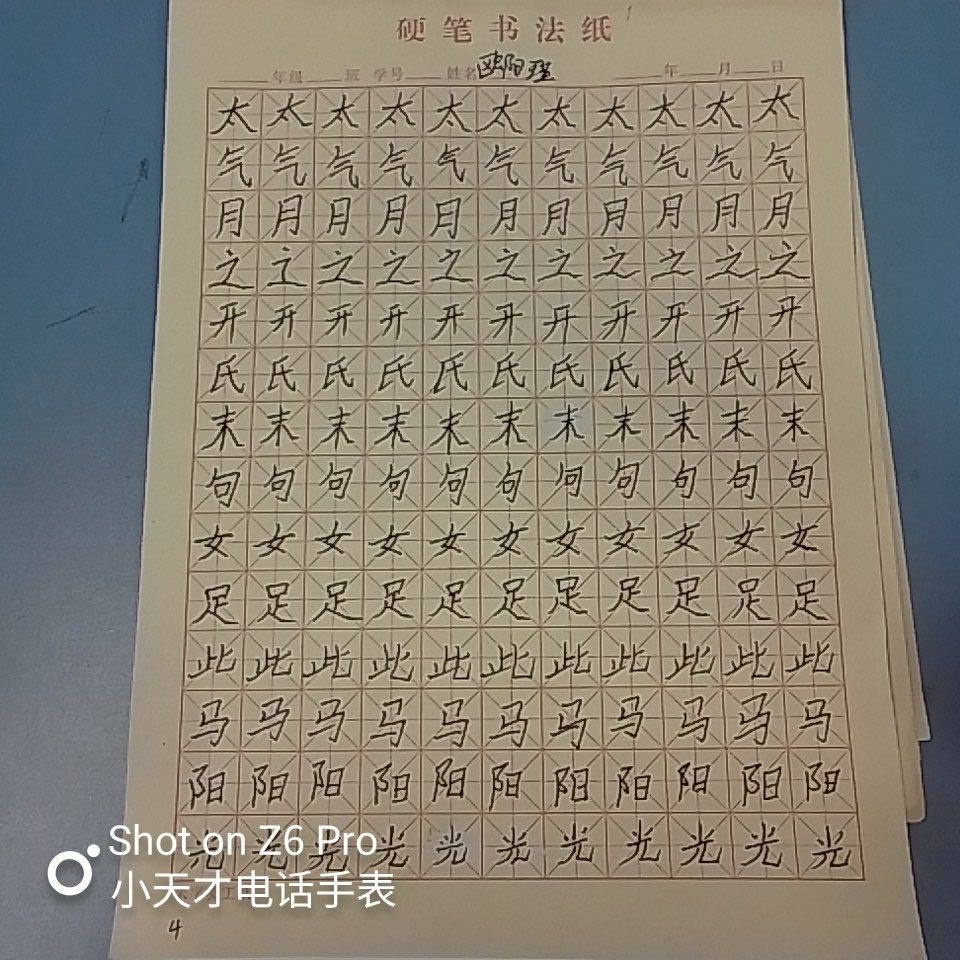 硬笔书法纸
年级 班 学号 姓名 欧阳瑾 年 月 日
太太太太太太太太太太太
气气气气气气气气气气气
月月月月月月月月月月月
之之之之之之之之之之之
开开开开开开开开开开开
氏氏氏氏氏氏氏氏氏氏氏
末末末末末末末末末末末
句句句句句句句句句句句
女女女女女女女女女女女
足足足足足足足足足足足
此此此此此此此此此此此
马马马马马马马马马马马
阳阳阳阳阳阳阳阳阳阳阳
光光光光光光光光光光光
Shot on Z6 Pro
小天才电话手表
4